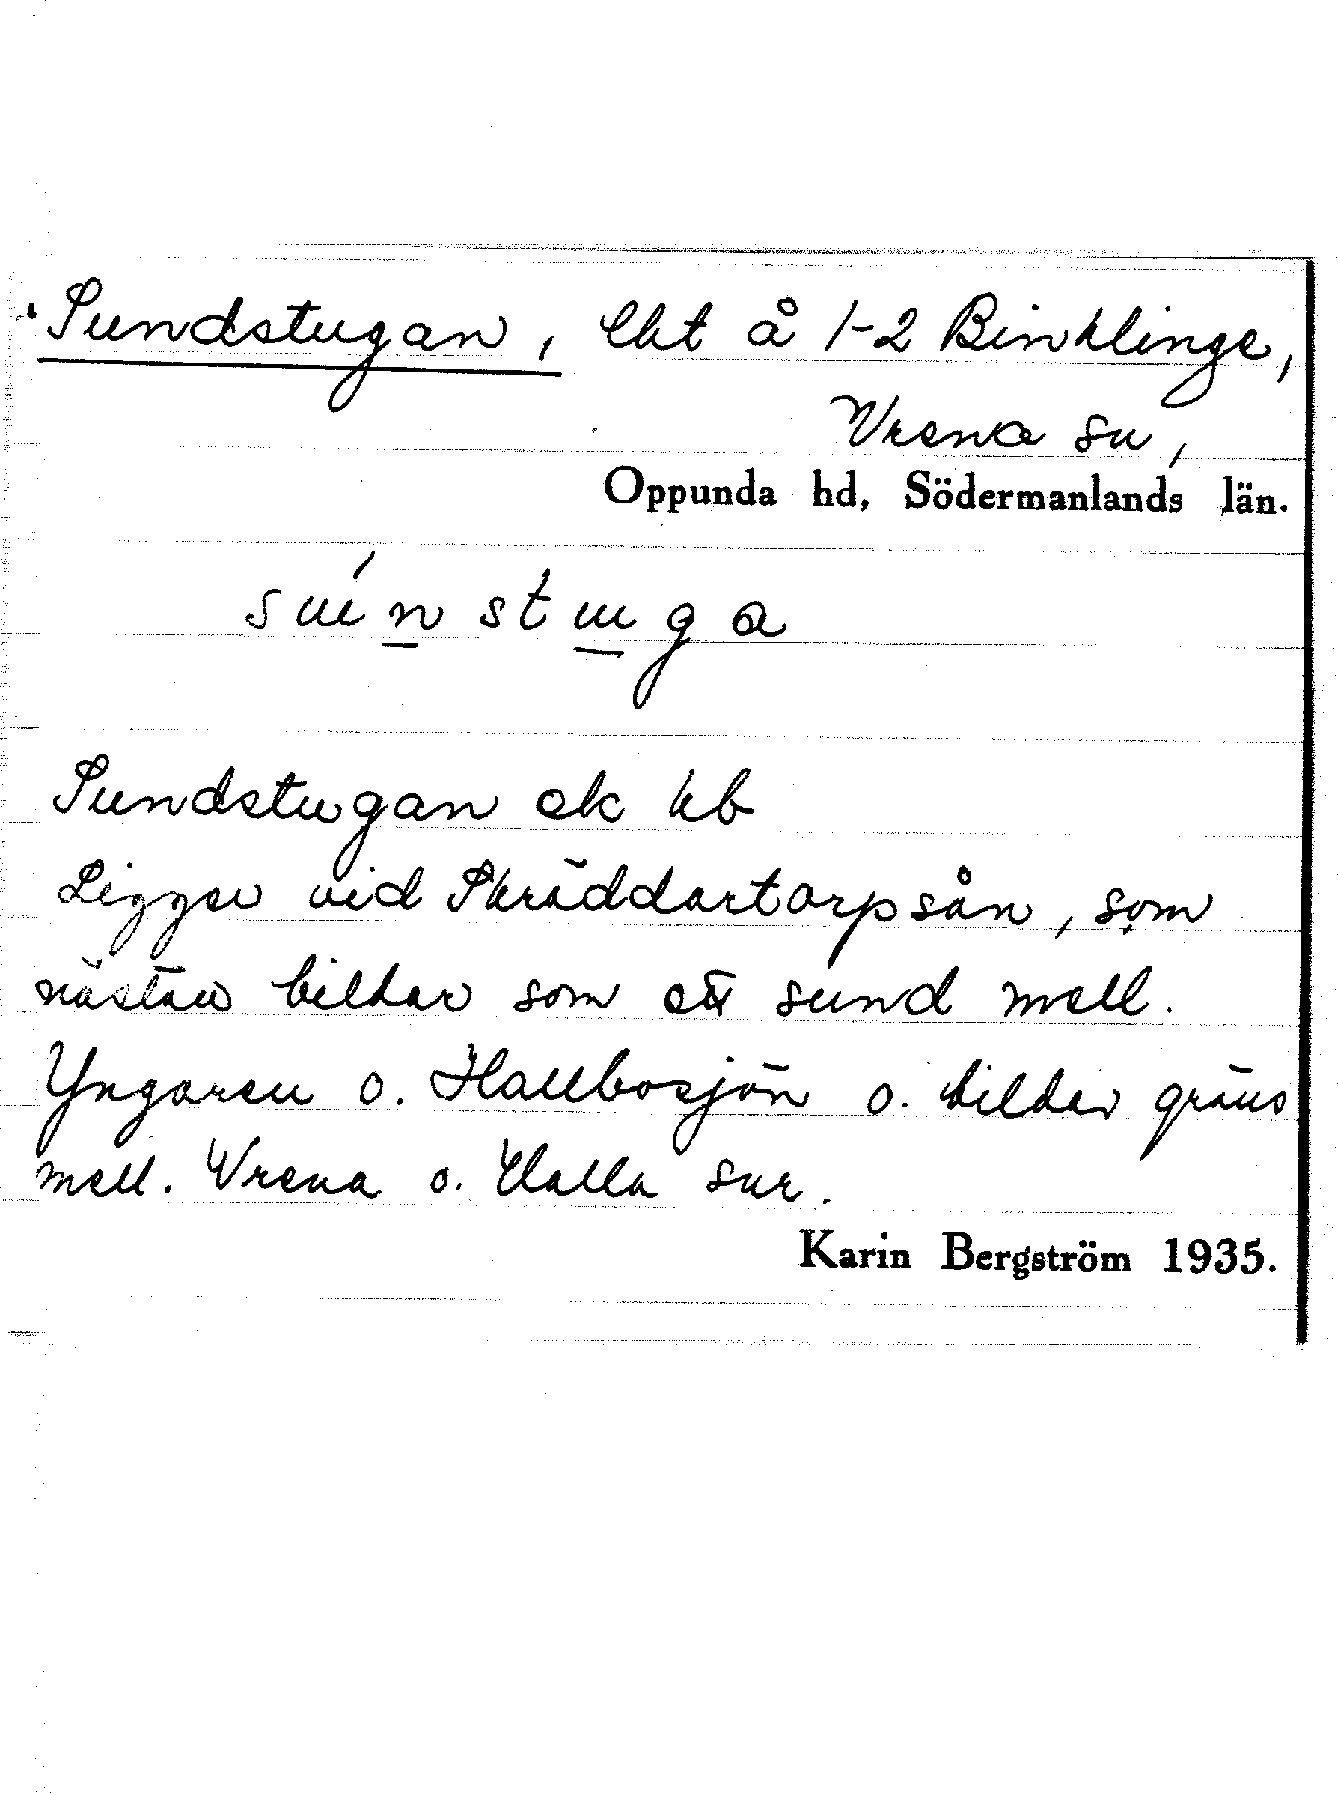 Sundstugan, lht å 1-2 Binklinge,
Vrena sn,
Oppunda hd, Södermanlands län.
súnstuga
Sundstugan ek kb
Ligger vid Skräddartorpsån, som
nästan bildar som ett sund mell.
Yngaren o. Hallbosjön o. bildar gräns
mell. Vrena o. Halla snr.
Karin Bergström 1935.